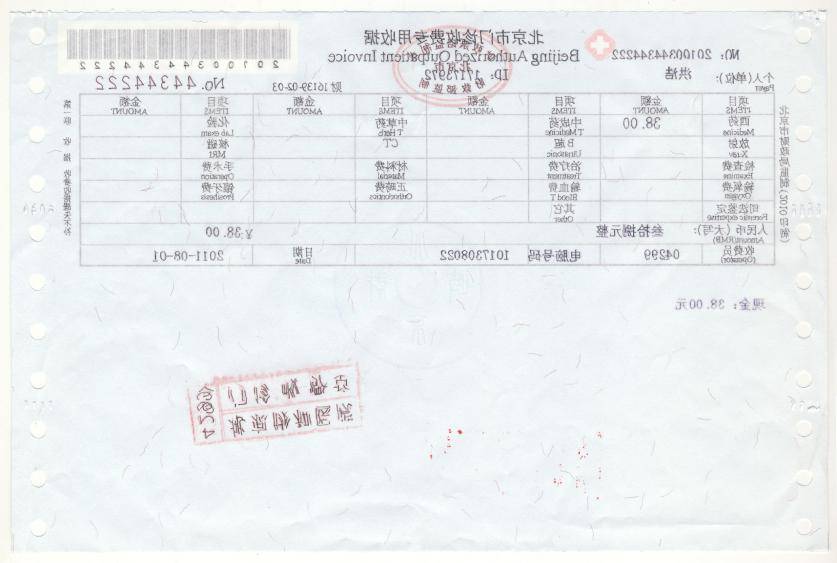 北京市门诊收费专用收据
Beijing Authorized Outpatient Invoice
NO: 20100344344222
20100344344222
ID: 17173972
个人(单位): 洪浩
Payer
财 16139-02-03
No. 44344222
项目 金额 项目 金额 项目 金额 项目 金额
ITEMS AMOUNT ITEMS AMOUNT ITEMS AMOUNT ITEMS AMOUNT
西药 38.00 中成药 中草药 化验
Medicine T.Medicine T Herb Lab exam
放射 B超 CT 核磁
X-ray Ultrasonic MRI
检查费 治疗费 材料费 手术费
Examine Treatment Material Operation
输氧费 输血费 正畸费 镶牙费
Oxygen Blood T Orthodontics Prosthesis
司法鉴定 其它
Forensic expertise Other
人民币(大写): 叁拾捌元整 ¥ 38.00
Amount(RMB)
收费员 04299 电脑号码 1017308022 日期 2011-08-01
(Operator) Date
北京市财政局监制(2010印制)
现金: 38.00元